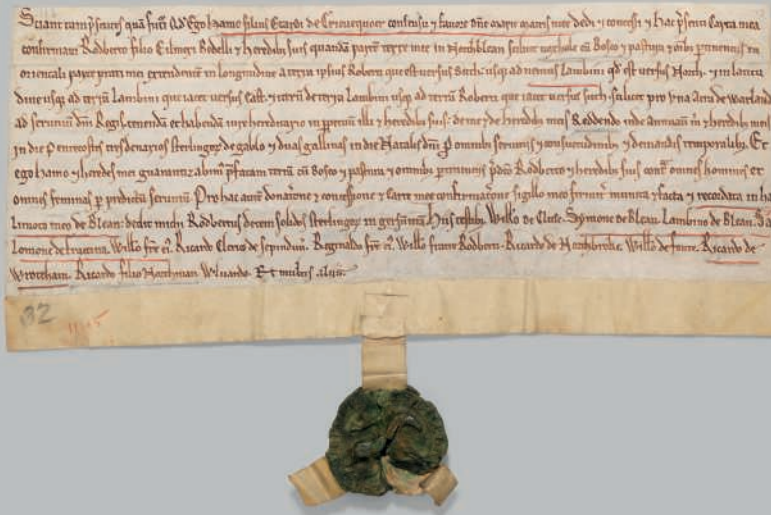 Sciant tam p̃sentes quam fut̃i qd̃ Ego hamo filius Etardi de Creuequoer consensu ⁊ fauore dñe matris mee dedi ⁊ concessi ⁊ hac p̃senti Carta mea
confirmaui Rodberto filio Eilmeri Bedelli ⁊ heredibꝫ suis quandã partẽ terre mee in Northblean scilicet cũ Bosco ⁊ pastura ⁊ oĩbꝫ ptinentiis in
orientali parte prati mei extendentẽ in longitudine a terra ipsius Roberti que est uersus Suth usqꝫ ad nemus Lambini qd̃ est uersus North ⁊ in latitu
dine usqꝫ ad terrã Lambini que iacet uersus East ⁊ de terra Lambini usqꝫ ad terrã Roberti que iacet uersus suth scilicet pro vna Acra de Warland
ad seruitiũ dñi Regis tenendã et habendã iure hereditario in ppetuũ illi ⁊ heredibꝫ suis de me ⁊ de heredibꝫ meis Reddendo inde annuatim m̃ ⁊ heredibꝫ meis
in die Pentecostes tres denarios sterlingoꝝ de gablo ⁊ duas gallinas in die Natalis dñi p omnibꝫ seruitiis ⁊ consuetudinibꝫ ⁊ demandis temporalibꝫ. Et
ego hamo ⁊ heredes mei guarantizabim̃ p̃fatam terrã cũ Bosco ⁊ pastura ⁊ omnibꝫ ptinentiis p̃dc̃o Rodberto ⁊ heredibꝫ suis cont̃ omnes homines Et
omnes feminas p predictũ seruitiũ Pro hac autẽ donatione ⁊ concessione ⁊ Carte mee confirmatione sigillo meo munita ⁊ facta ⁊ recordata in ha
limoto meo de Blean: dedit michi Rodbertus decem solidos sterlingoꝝ in gersumã His testibꝫ Willo de Cluse. Symone de Blean. Lambino de Blean. Sa
lomone de fractura. Willo fr̃e ei. Ricardo Clerico de Reginaldo fr̃e ei. Willo fratre Rodberti. Ricardo de Northbroke. Willo de fonte. Ricardo de
Wrotham. Ricardo filio Northman. Wluardo. Et multis aliis.
32